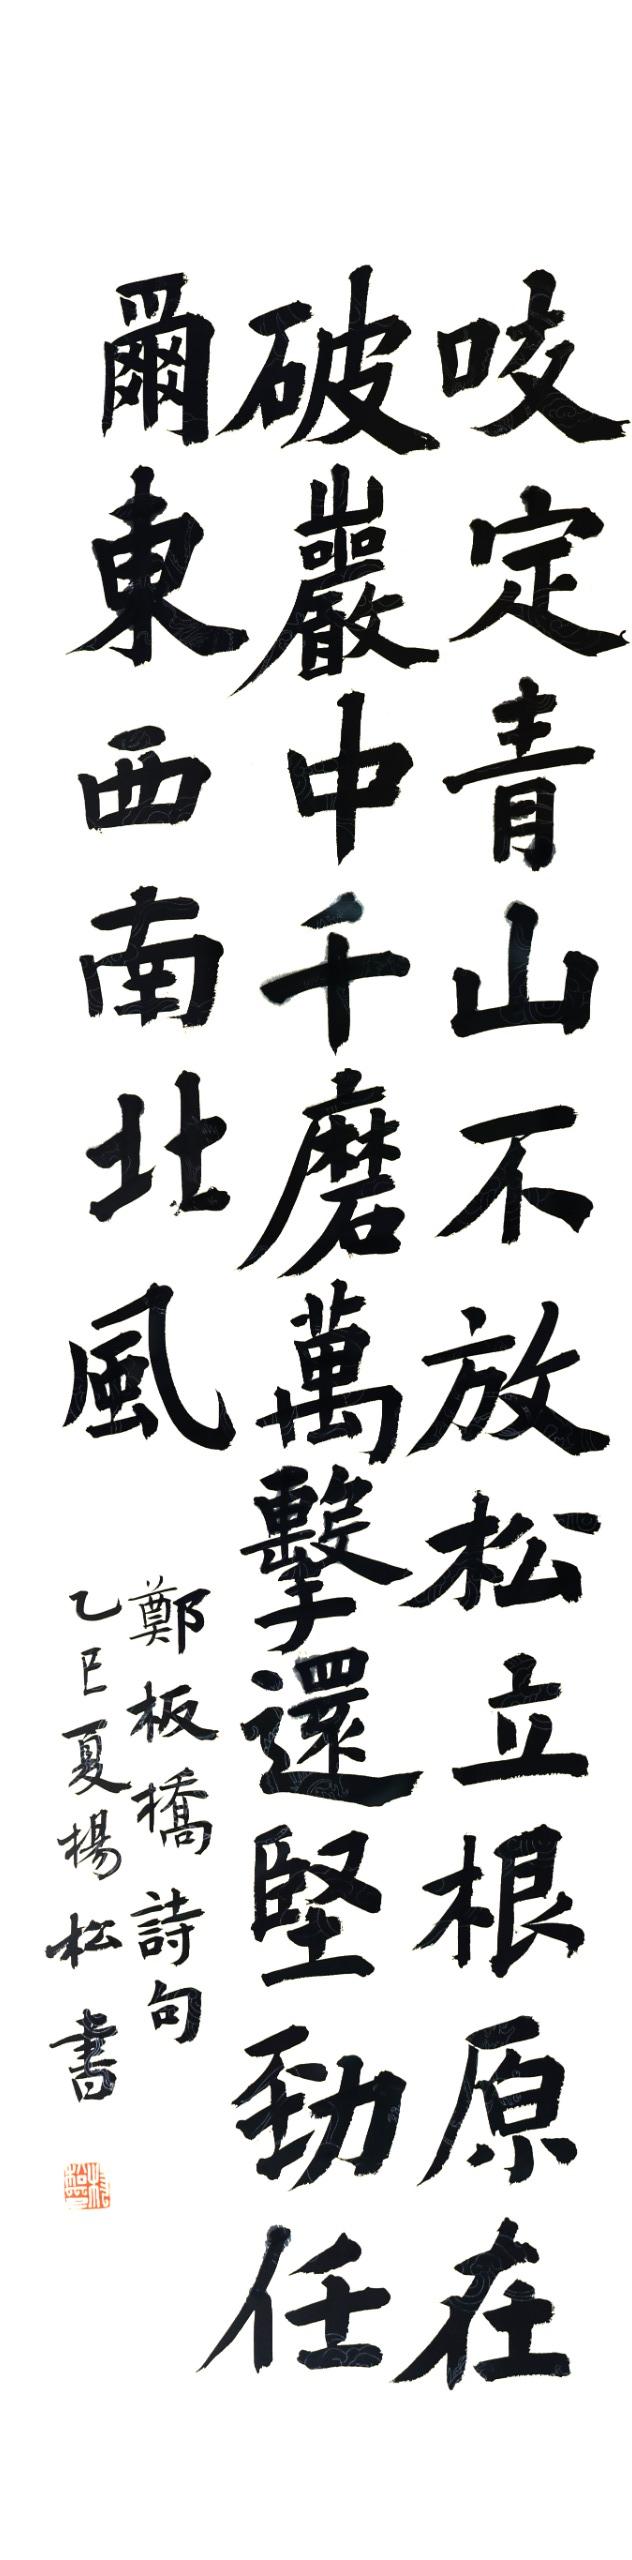 咬定青山不放松立根原在
破巖中千磨萬擊還堅勁任
爾東西南北風
鄭板橋詩句
乙巳夏楊松書